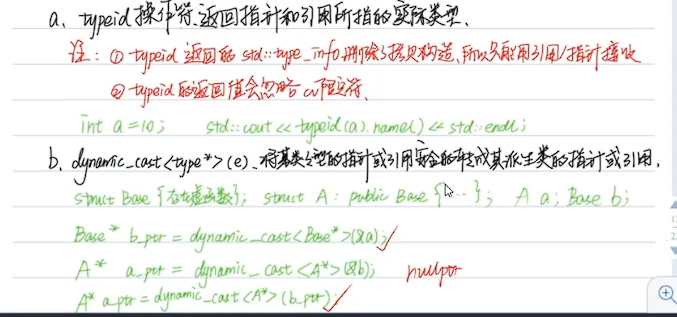 a、typeid操作符、返回指针和引用所指的实际类型、
注：① typeid 返回的 std::type_info 删除了拷贝构造、所以只能用引用/指针接收
② typeid的返回值会忽略cv限定符、
int a=10； std::cout << typeid(a).name() << std::endl；
b、dynamic_cast<type*>(e)、将基类类型的指针或引用安全的转成其派生类的指针或引用，
struct Base {存在虚函数}； struct A：public Base {…}； A a；Base b；
Base* b_ptr = dynamic_cast<Base*>(&a)；✓
A* a_ptr = dynamic_cast<A*>(&b)； nullptr
A* a_ptr = dynamic_cast<A*>(b_ptr)；✓